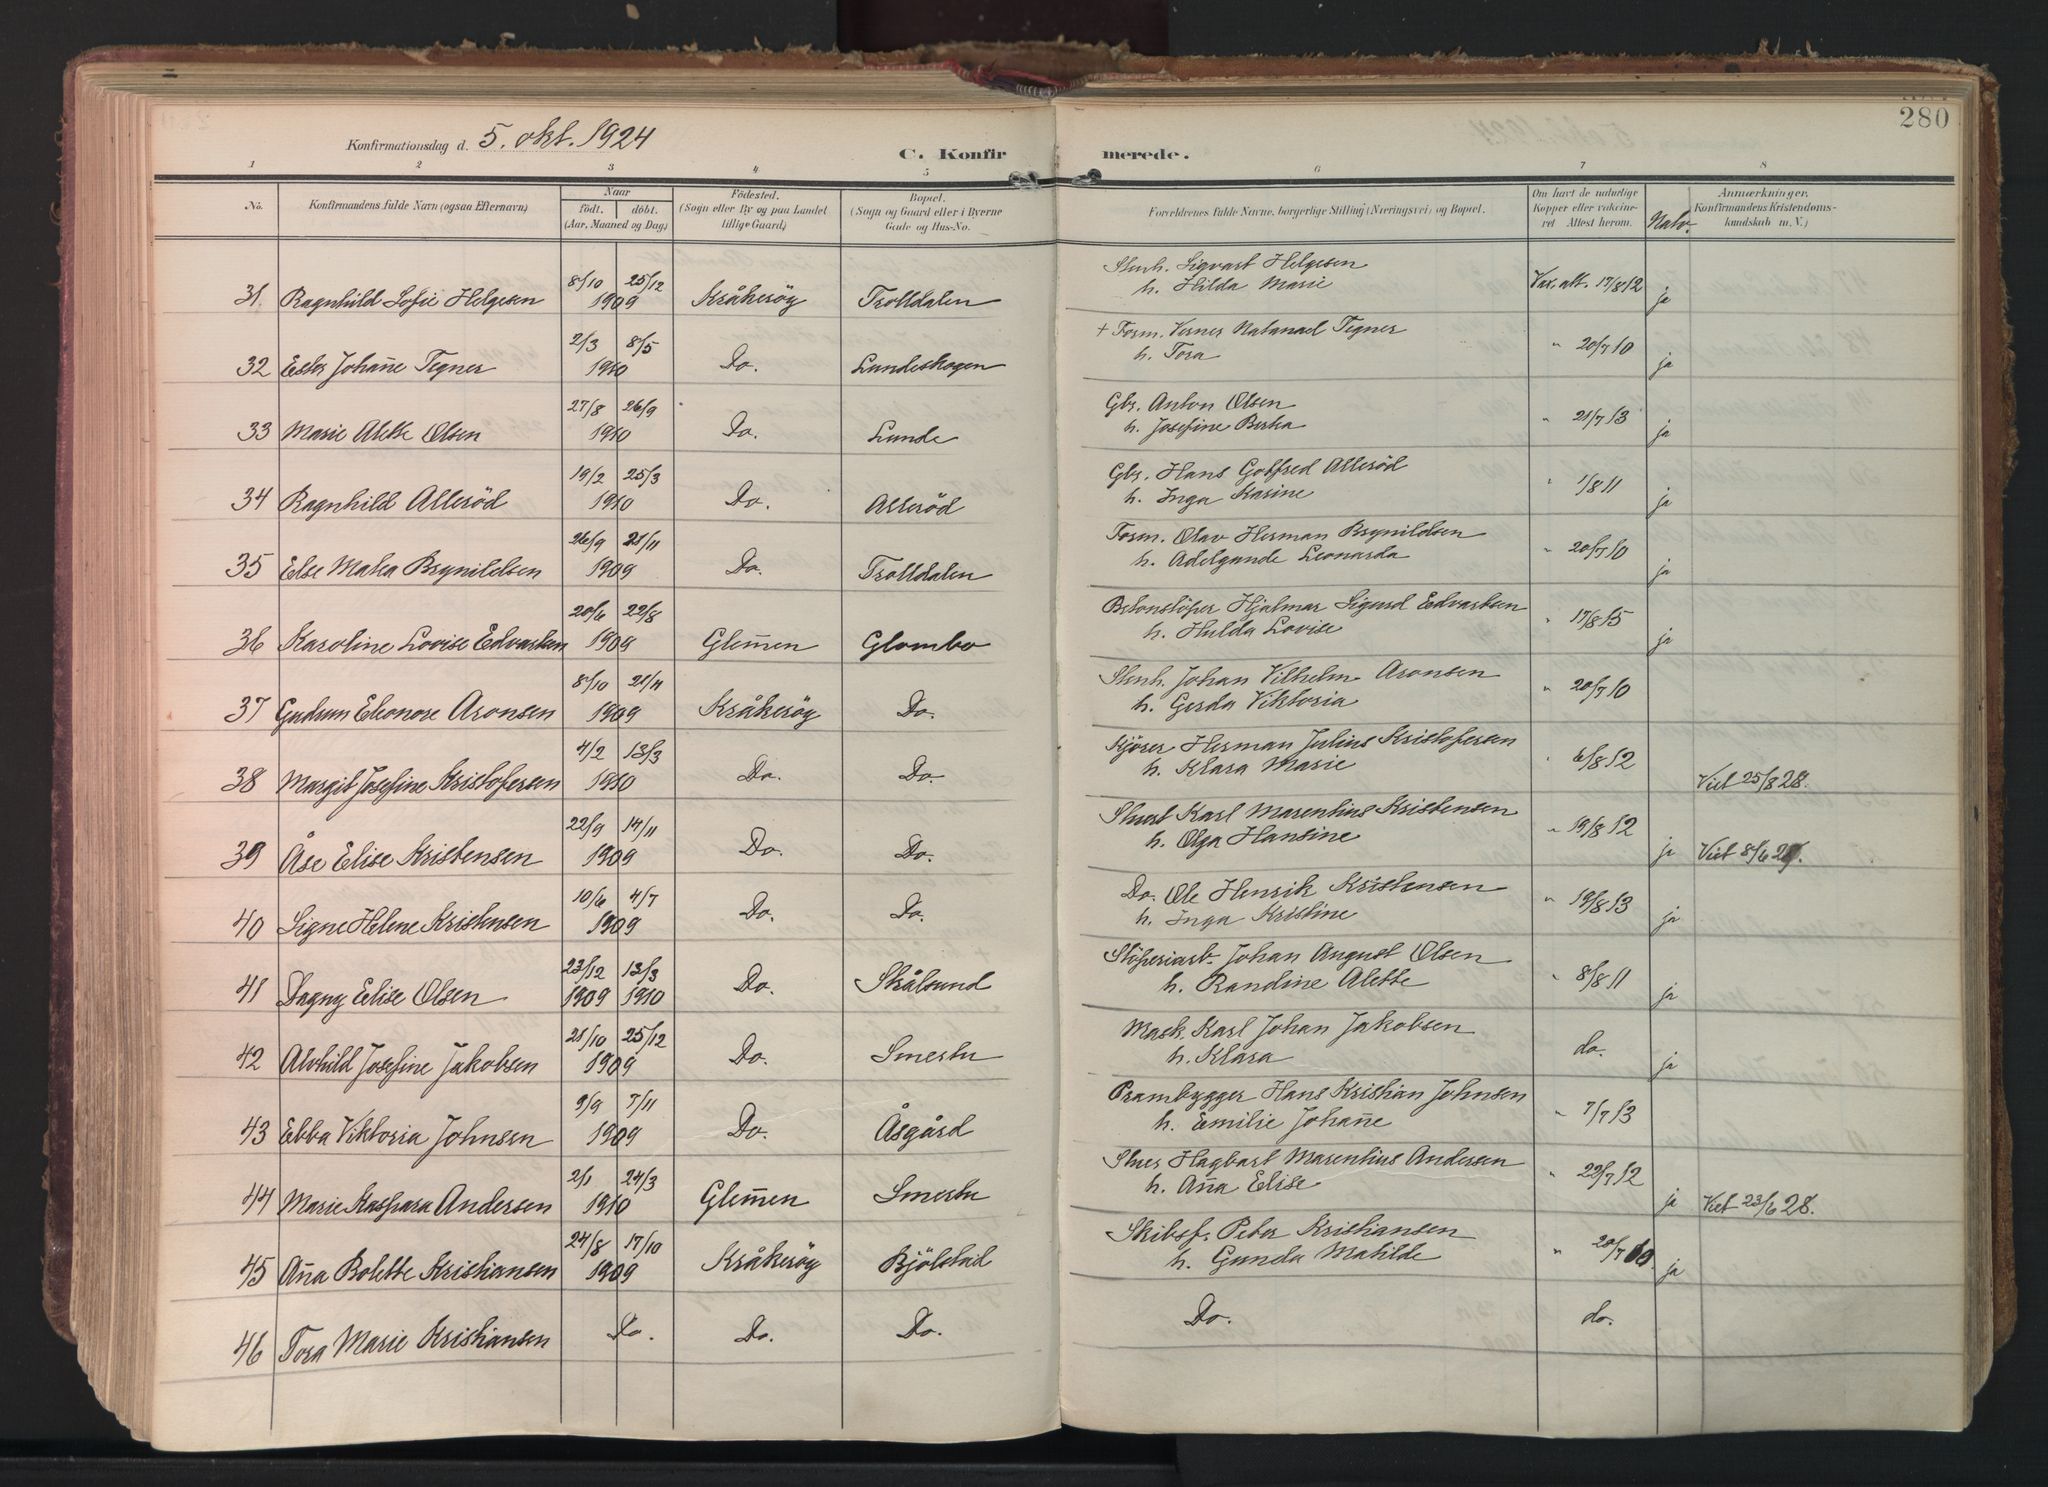 280
Konfirmationsdag d. 5. okt. 1924
C. Konfirmerede.
1 2 3 4 5 6 7 8
No. Konfirmandens fulde Navn (ogsaa Efternavn) Naar födt. döbt. (Aar, Maaned og Dag) Födested. (Sogn eller By og paa Landet tillige Gaard) Bopæl. (Sogn og Gaard eller i Byerne Gade og Hus-No. Forældrenes fulde Navne, borgerlige Stilling (Næringsvei) og Bopæl. Om havt de naturlige Kopper eller vakcineret Attest herom. Natv. Anmærkninger. (Konfirmandens Kristendomskundskab m. V.)
31. Ragnhild Sofie Helgesen 8/10 25/12 1909 Kråkeröy Trolldalen Stenh. Sigvart Helgesen
h. Hilda Marie Vax. att. 17/8 12 ja
32 Ester Johan̄e Tegner 2/3 8/5 1910 Do. Lundeskogen + Form. Verner Natanael Tegner
h. Tora " 20/7 10 ja
33 Marie Alette Olsen 27/8 26/9 1910 Do. Lunde Gbr. Anton Olsen
h. Josefine Berta " 21/7 13 ja
34 Ragnhild Alleröd 19/2 25/3 1910 Do. Alleröd Gbr. Hans Gotfred Alleröd
h. Inga Karine " 1/8 11 ja
35 Else Matea Brynildsen 26/9 21/11 1909 Do. Trolldalen Form. Olav Herman Brynildsen
h. Adelgunde Leonarda " 20/7 10 ja
36 Karoline Lovise Edvartsen 20/6 22/8 1909 Glem̄en Glombo Betonstöper Hjalmar Sigurd Edvartsen
h. Hulda Lovise " 17/8 15 ja
37 Gudrun Eleonore Aronsen 8/10 21/11 1909 Kråkeröy Do. Stenh. Johan Vilhelm Aronsen
h. Gerda Viktoria " 20/7 10
38 Margit Josefine Kristofersen 4/2 13/3 1910 Do. Do. Kjörer Herman Julius Kristofersen
h. Klara Marie " 6/8 12 Viet 25/8 28.
39 Åse Elise Kristensen 22/9 14/11 1909 Do. Do. Karl Marentius Kristensen
h. Olga Hansine " 19/8 12 ja Viet 8/6
40 Signe Helene Kristensen 10/6 4/7 1909 Do. Do. Do. Ole Henrik Kristensen
h. Inga Kristine " 19/8 13 ja
41 Dagny Elise Olsen 23/12 1909 13/3 1910 Do. Skålsund Stöperiarb. Johan August Olsen
h. Randine Alette " 8/8 11 ja
42 Alvhild Josefine Jakobsen 21/10 25/12 1909 Do. Smertu Mask. Karl Johan Jakobsen
h. Klara do. ja
43 Ebba Viktoria Johnsen 9/9 7/11 1909 Do. Åsgård Prambygger Hans Kristian Johnsen
h. Emilie Johan̄e " 7/7 13
44 Marie Kaspara Andersen 2/1 24/3 1910 Glem̄en Smertu Hagbart Marentius Andersen
h. An̄a Elise " 22/7 12 ja Viet 23/6 28.
45 An̄a Bolette Kristiansen 24/8 17/10 1909 Kråkeröy Bjölstad Skibsf. Peter Kristiansen
h. Gunda Matilde " 20/7 10. ja
46 Tora Marie Kristiansen Do. Do. Do. Do. do.